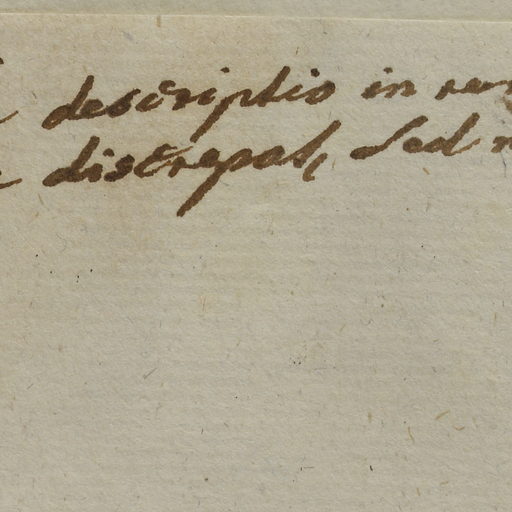 descriptio in
discrepat, sed